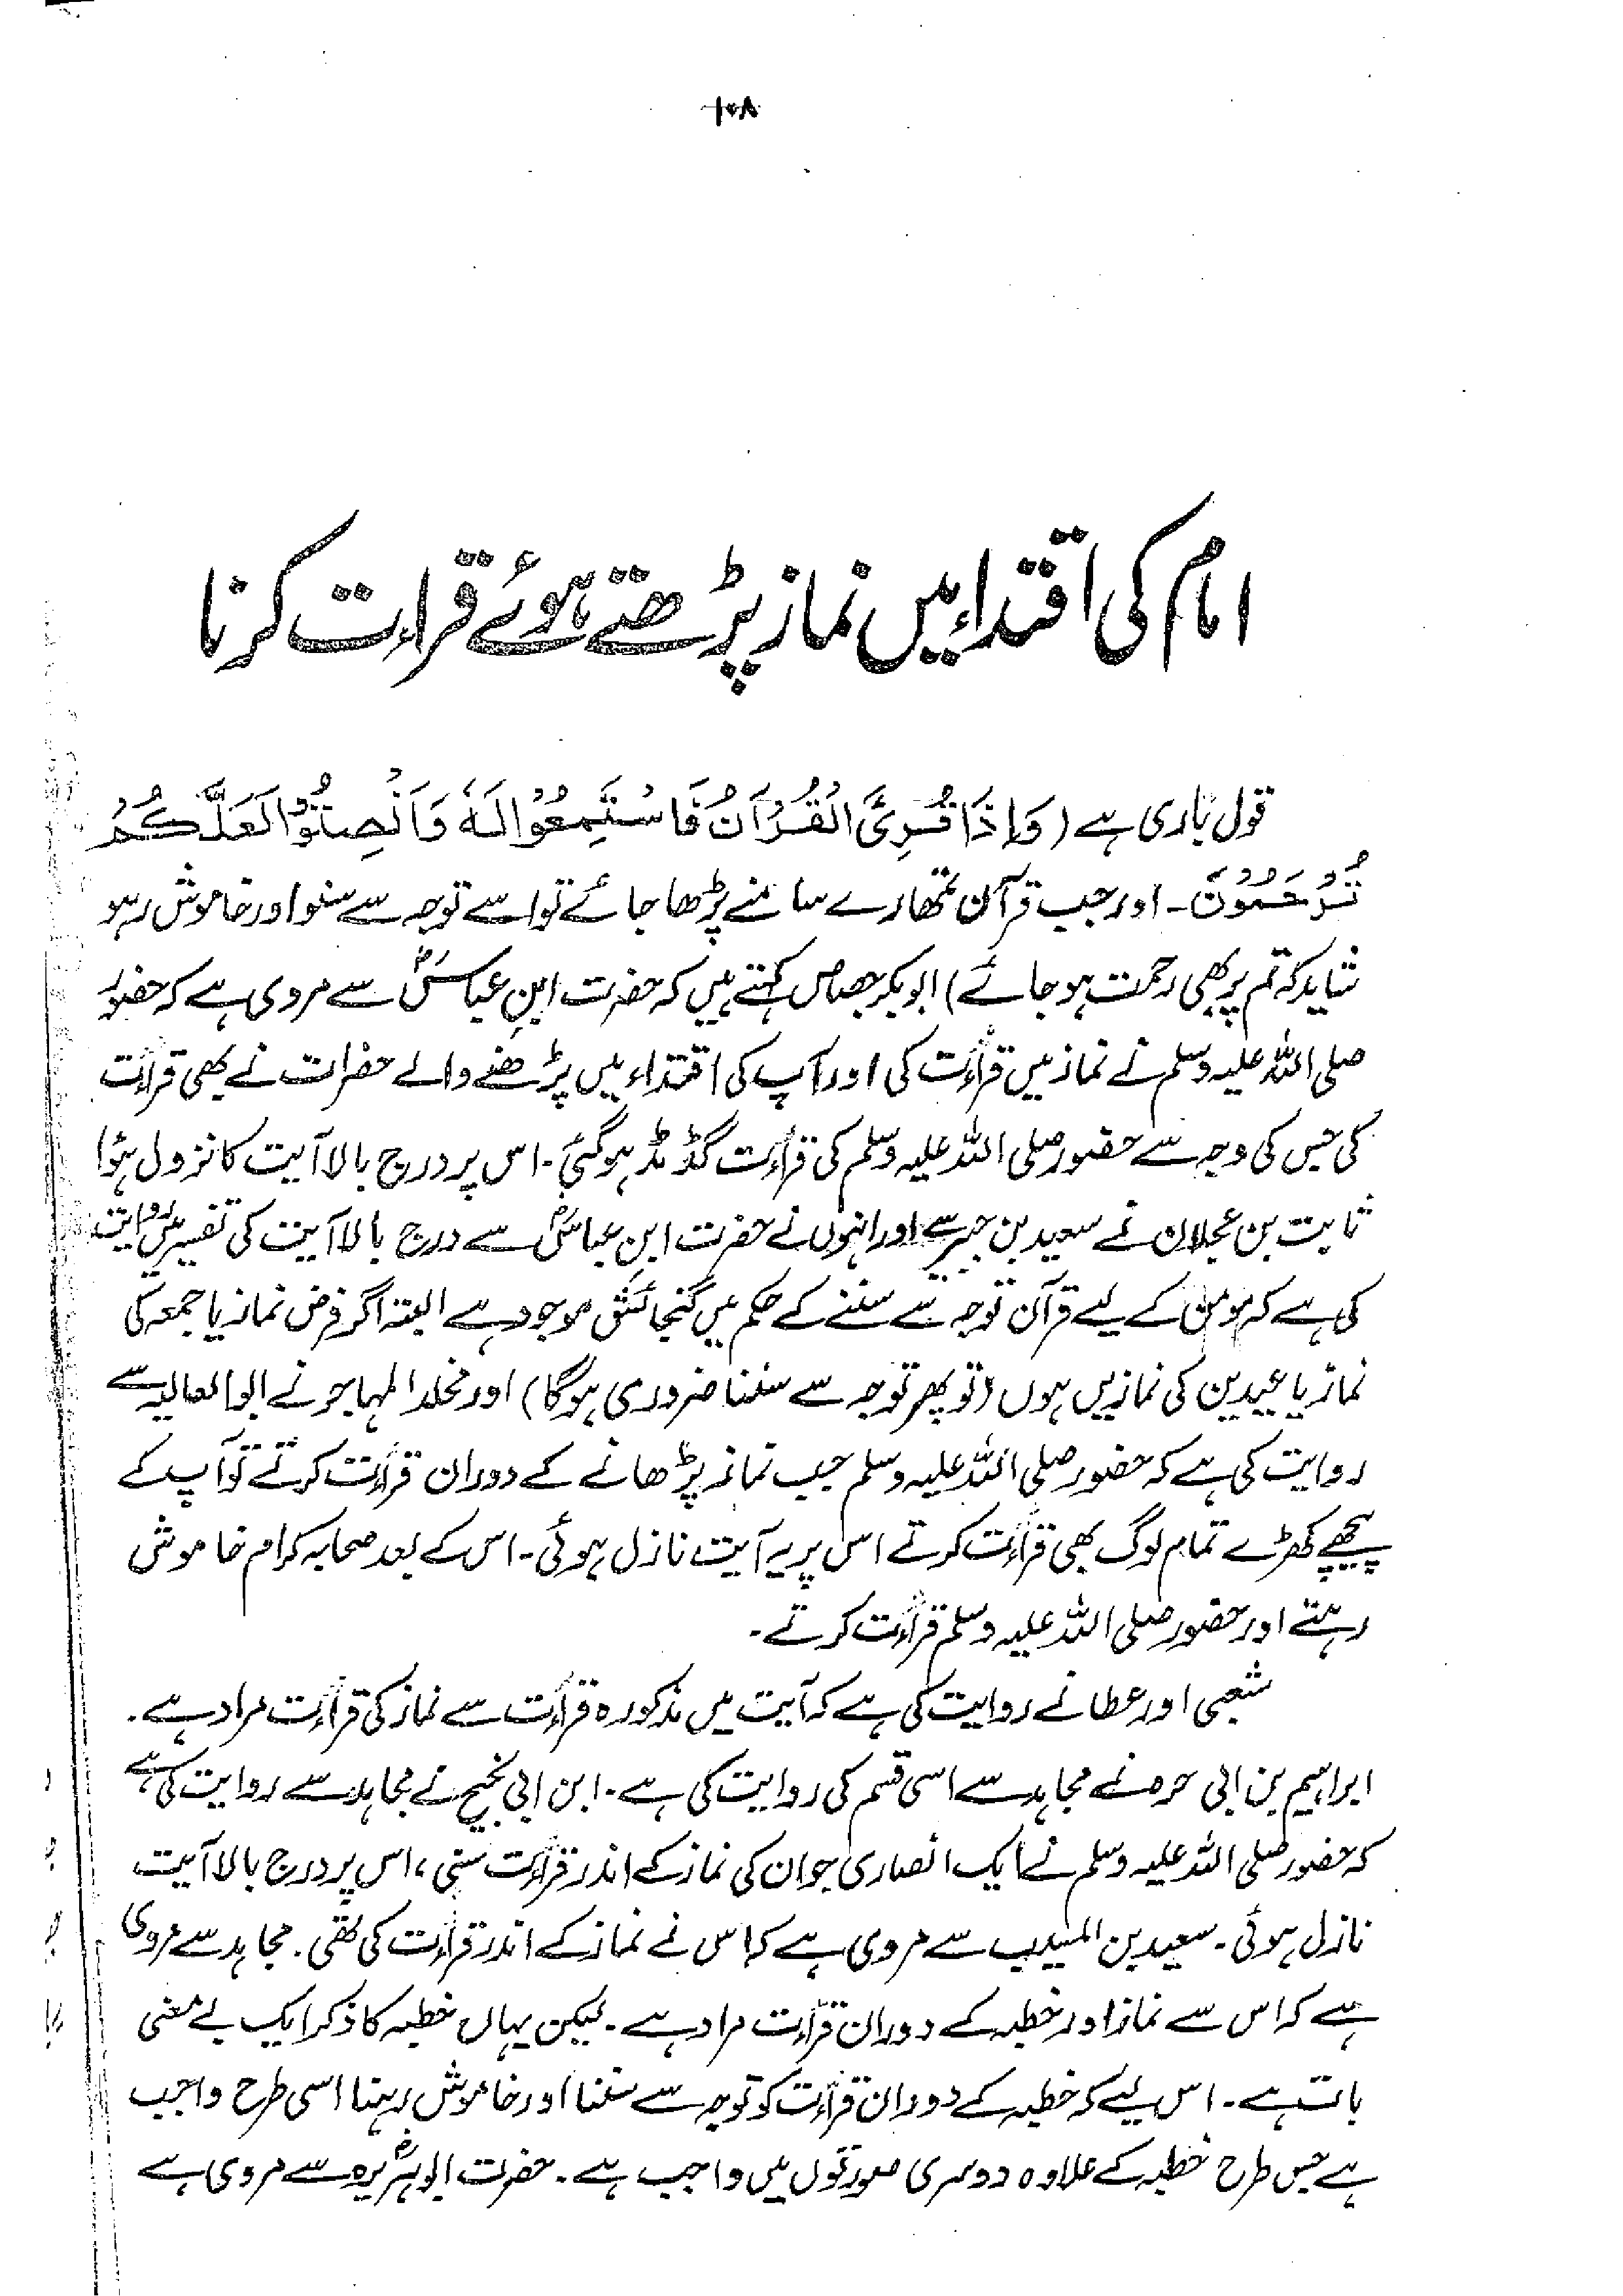 ۱۰۸
امام کی اقتداء میں نماز پڑھتے ہوئے قراءت کرنا
قول باری ہے (وَإِذَا قُرِئَ الْقُرْآنُ فَاسْتَمِعُوْا لَهٗ وَاَنْصِتُوْا لَعَلَّكُمْ
تُرْحَمُوْنَ ۔ اور جب قرآن تمھارے سامنے پڑھا جائے تو اسے توجہ سے سنو اور خاموش رہو
شاید کہ تم پر بھی رحمت ہو جائے) ابوبکر جصاص کہتے ہیں کہ حضرت ابنِ عباسؓ سے مروی ہے کہ حضور
صلی اللہ علیہ وسلم نے نماز میں قرأت کی اور آپ کی اقتداء میں پڑھنے والے حضرات نے بھی قرأت
کی جس کی وجہ سے حضور صلی اللہ علیہ وسلم کی قرأت گڈ مڈ ہو گئی ۔ اس پر درج بالا آیت کا نزول ہؤا
ثابت بن عجلان نے سعید بن جبیر سے اور انہوں نے حضرت ابنِ عباسؓ سے درج بالا آیت کی تفسیر میں روایت
کی ہے کہ مومن کے لیے قرآن توجہ سے سننے کے حکم میں گنجائش موجود ہے البتہ اگر فرض نماز یا جمعہ کی
نماز یا عیدین کی نمازیں ہوں (تو پھر توجہ سے سننا ضروری ہوگا) اور مخلد المہاجر نے ابوالعالیہ سے
روایت کی ہے کہ حضور صلی اللہ علیہ وسلم جب نماز پڑھانے کے دوران قرأت کرتے تو آپ کے
پیچھے کھڑے تمام لوگ بھی قرأت کرتے اس پر یہ آیت نازل ہوئی ۔ اس کے بعد صحابہ کرام خاموش
رہتے اور حضور صلی اللہ علیہ وسلم قرأت کرتے ۔
شعبی اور عطا نے روایت کی ہے کہ آیت میں مذکورہ قرأت سے نماز کی قرأت مراد ہے ۔
ابراہیم بن ابی حرہ نے مجاہد سے اسی قسم کی روایت کی ہے ۔ ابن ابی نجیح نے مجاہد سے روایت کی ہے
کہ حضور صلی اللہ علیہ وسلم نے ایک انصاری جوان کی نماز کے اندر قرأت سنی، اس پر درج بالا آیت
نازل ہوئی ۔ سعید بن المسیب سے مروی ہے کہ اس نے نماز کے اندر قرأت کی تھی ۔ مجاہد سے مروی
ہے کہ اس سے نماز اور خطبہ کے دوران قرأت مراد ہے ۔ لیکن یہاں خطبہ کا ذکر ایک بے معنی
بات ہے ۔ اس لیے کہ خطبہ کے دوران قرأت کو توجہ سے سننا اور خاموش رہنا اسی طرح واجب
ہے جس طرح خطبہ کے علاوہ دوسری صورتوں میں واجب ہے ۔ حضرت ابوہریرہؓ سے مروی ہے